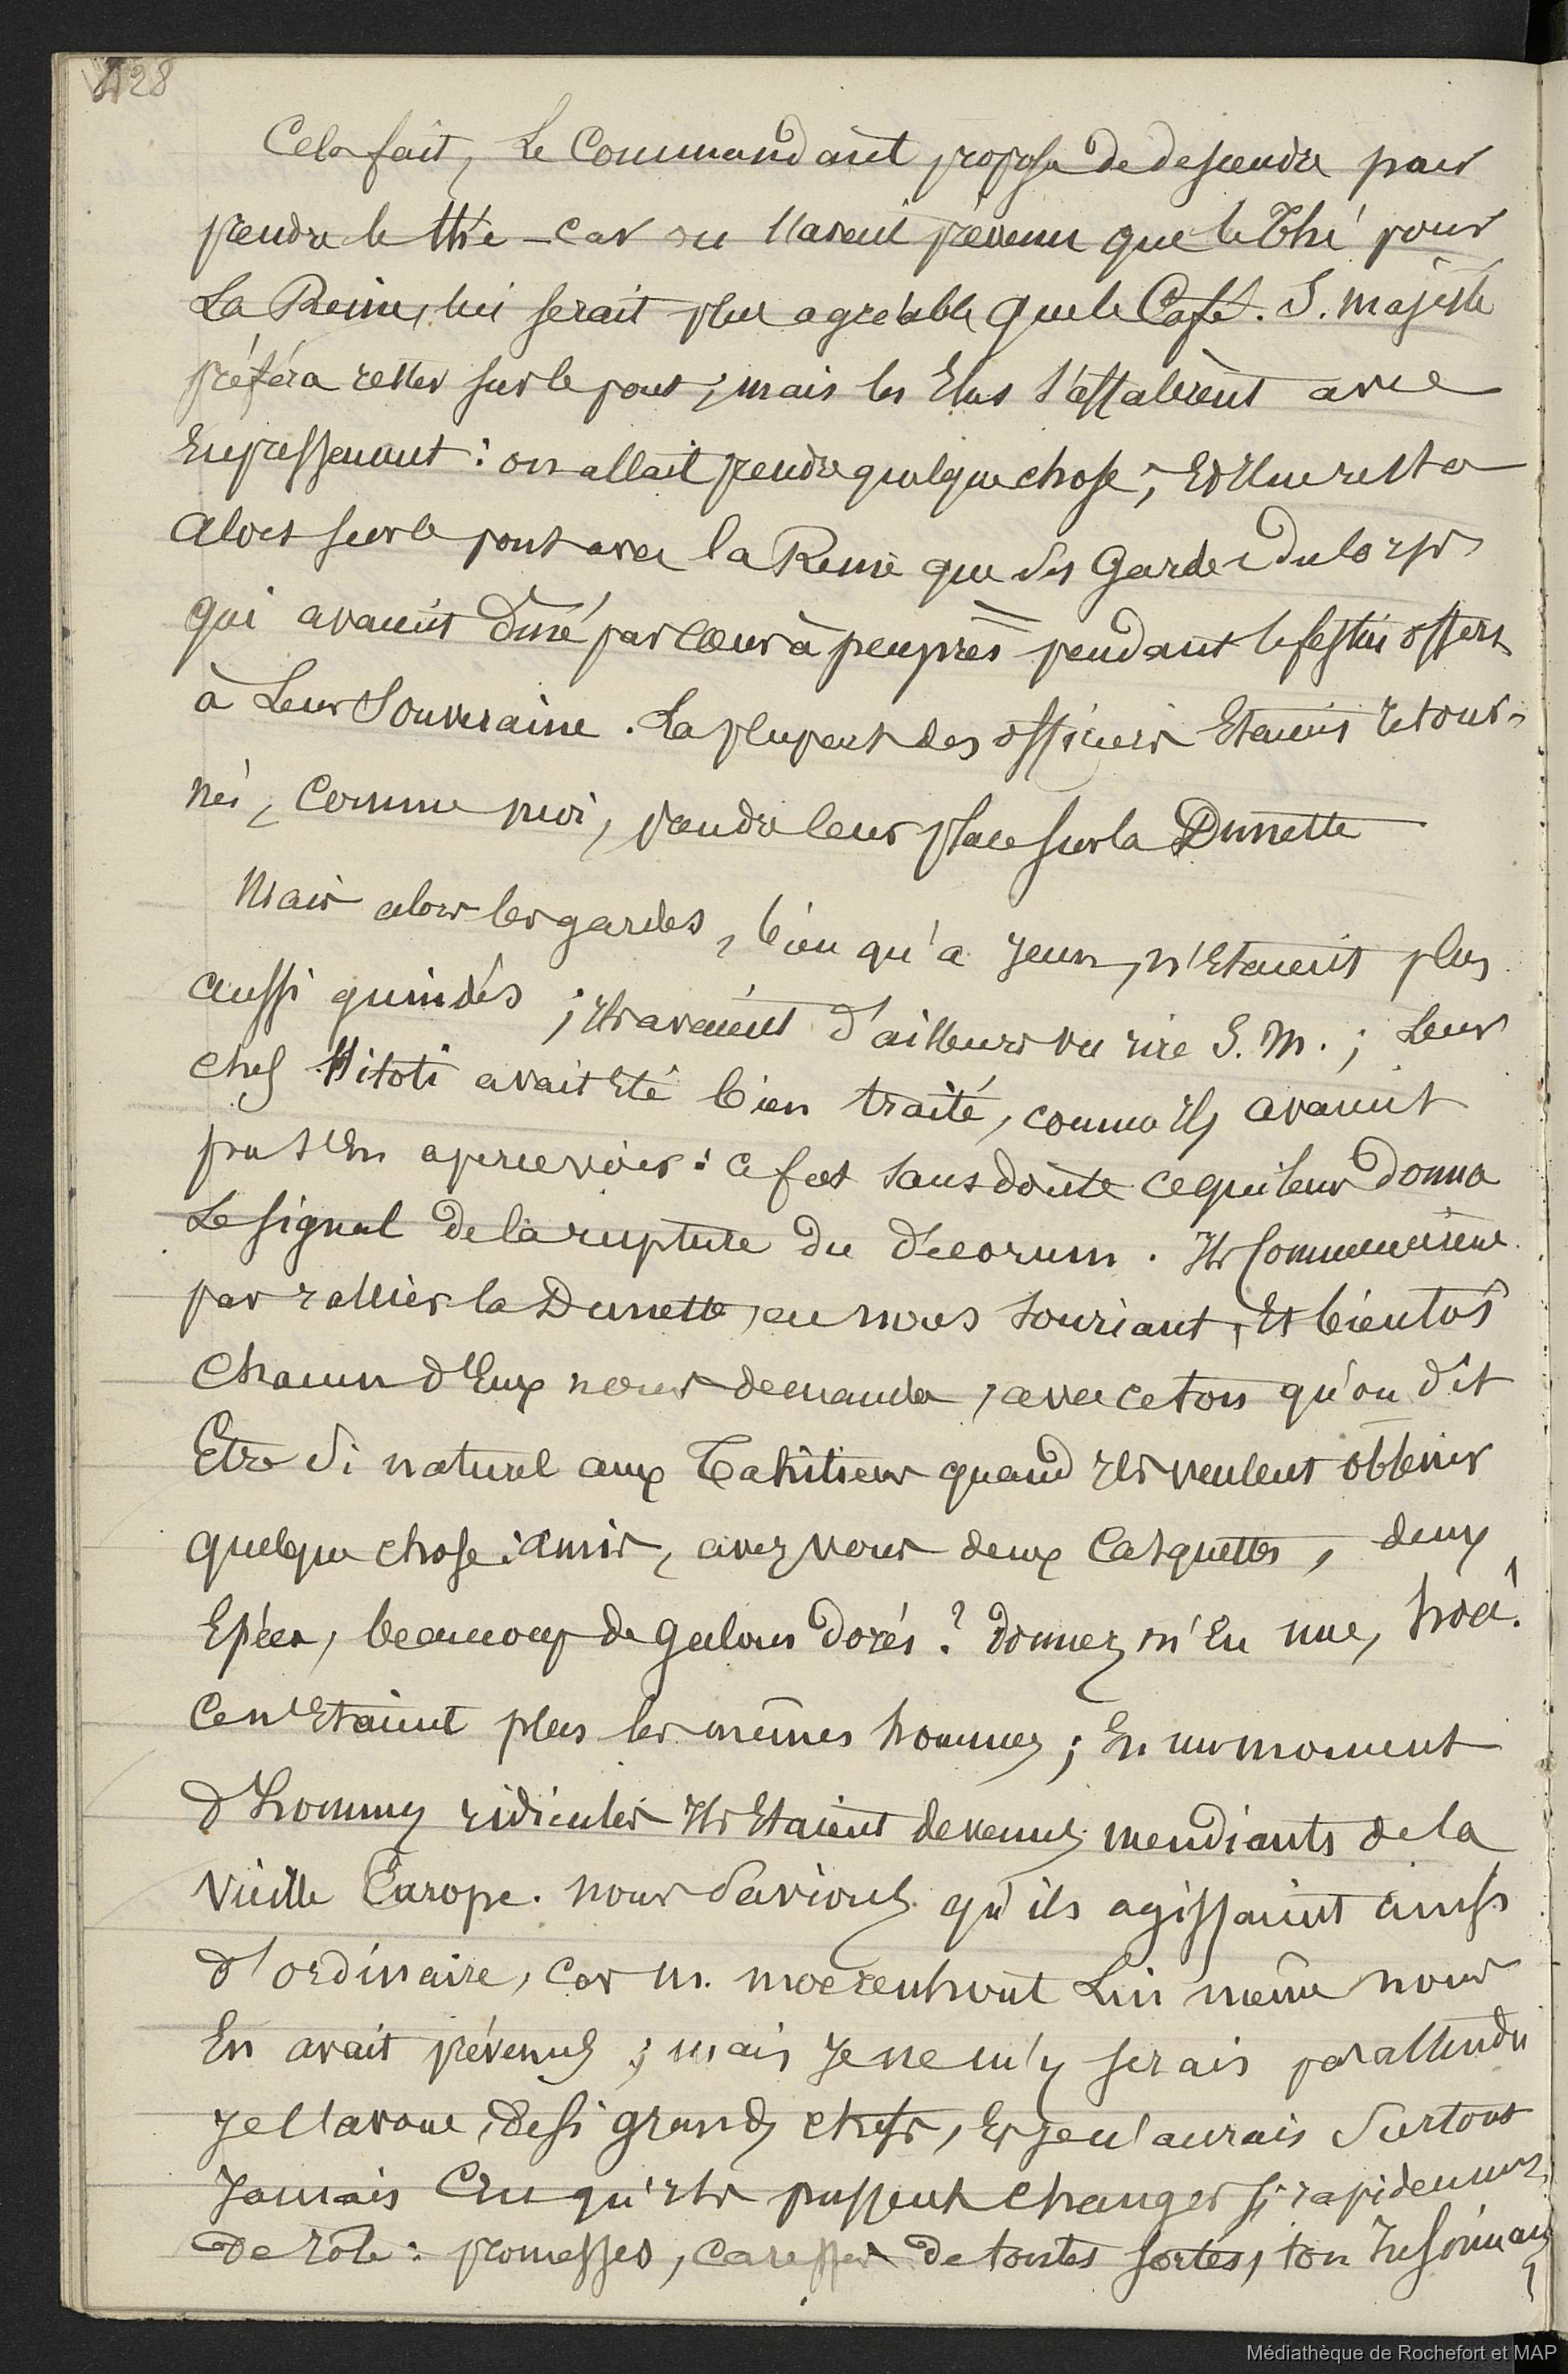 128
Cela fait, Le Commandant proposa de descendre pour
prendre le thé – car on l'avait prévenu que le Thé pour
La Reine, lui serait plus agréable que le Café. S. majesté
préféra rester sur le pont ; mais les Elus s'attablèrent avec
Empressement : on allait prendre quelque chose ; Et il ne resta
alors sur le pont avec la Reine que des Gardes du Corps
qui avaient diné par cœur à peu près pendant le festin offert
à Leur Souveraine. La plupart des officiers Etaient retour-
nés, comme moi, prendre leur place sur la Dunette
Mais alors les gardes, bien qu'à jeun, n'Etaient plus
aussi guindés ; ils avaient d'ailleurs vu rire S. M. ; Leur
chef Hitoti avait Eté bien traité, comme ils avaient
pu s'En apercevoir : ce fut sans doute ce qui leur donna
Le signal de la rupture du décorum. Ils Commencèrent
par rallier la Dunette, en nous souriant, Et bientôt
Chacun d'Eux nous demanda, avec ce ton qu'on dit
Etre si naturel aux Tahitiens quand ils veulent obtenir
quelque chose : amis, avez vous deux Casquettes, deux
Epées, beaucoup de galons dorés ? donnez m'En une, hoa !
Ce n'Etaient plus les mêmes hommes ; En un moment
d'hommes ridicules Ils Etaient devenus mendiants de la
Vieille Europe. nous Savions qu'ils agissaient ainsi
d'ordinaire, car M. moerenhout Lui même nous
En avait prévenus ; mais Je ne m'y serais pas attendu
Je l'avoue, de si grands chefs, Et je n'aurais Surtout
Jamais Cru qu'ils pussent changer si rapidement
de rôle : promesses, caresses de toutes sortes, ton Insinuant,
Médiathèque de Rochefort et MAP